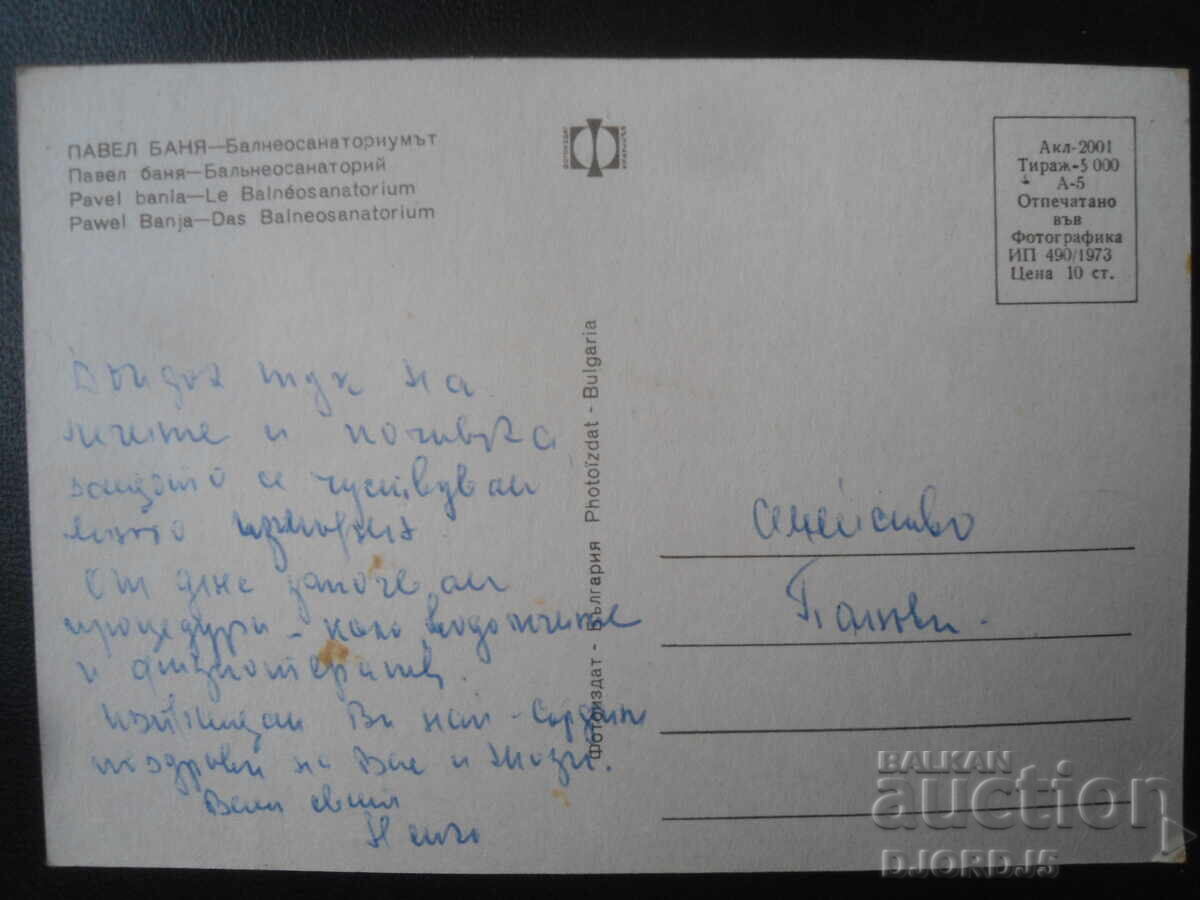 ПАВЕЛ БАНЯ—Балнеосанаториумът
Павел баня—Бальнеосанаторий
Pavel bania—Le Balnéosanatorium
Pawel Banja—Das Balneosanatorium
ФОТОИЗДАТ
Акл-2001
Тираж-5 000
А-5
Отпечатано
във
Фотографика
ИП 490/1973
Цена 10 ст.
Фотоиздат - България Photoïzdat - Bulgaria
Дойдох тук на
и почивка
защото се чуствувам
много
От днес започвам
процедури - како
и физиотерапия.
Ви най-сърдечни
поздрави на Вас и
Ваш
Семейство
BALKAN
auction
DJORDJ5